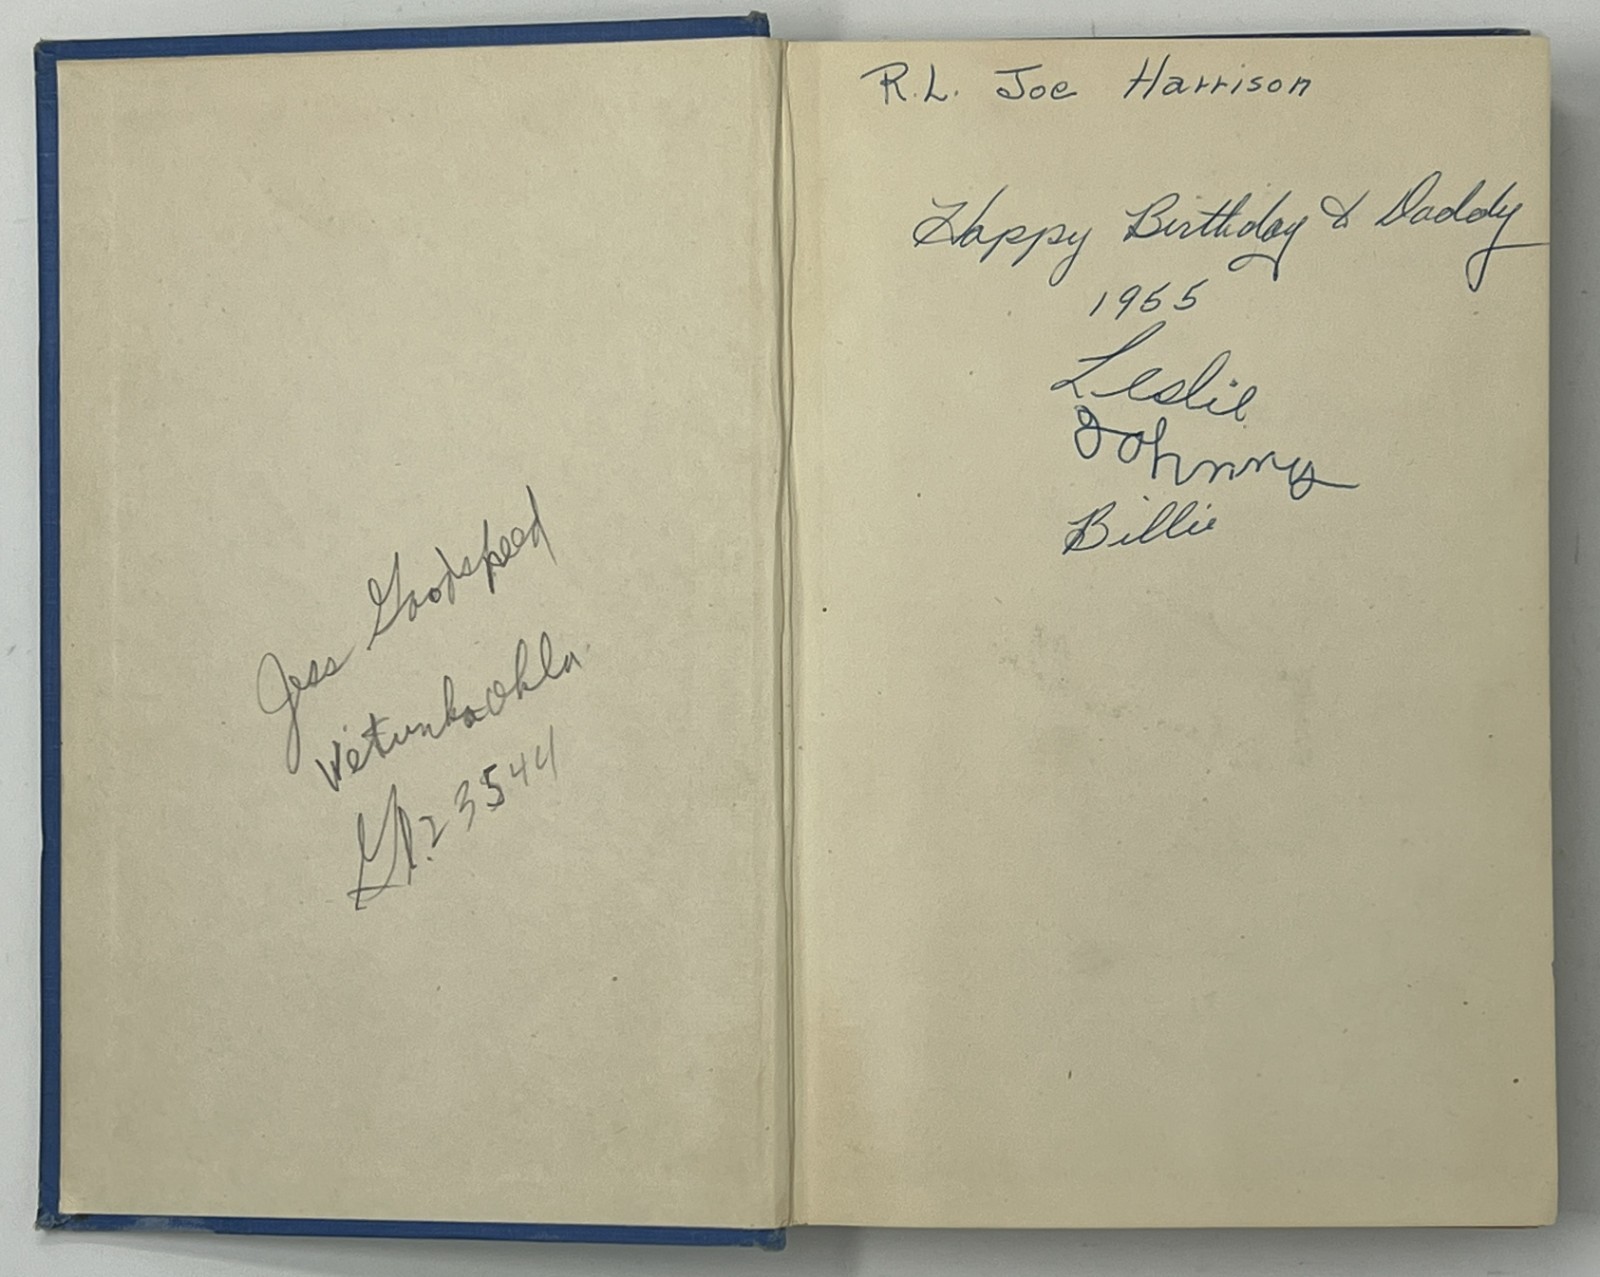 Jess Goodspeed
Wetumka Okla.
Gl. 23544
R.L. Joe Harrison
Happy Birthday & Daddy
1955
Leslie
Johnny
Billie